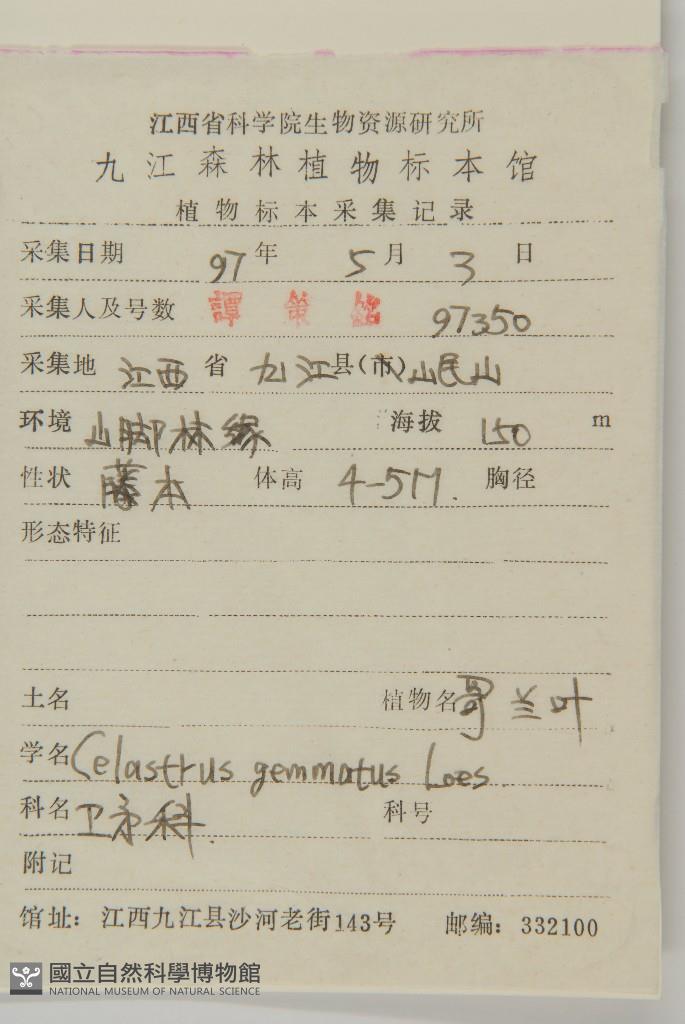 江西省科学院生物资源研究所
九江森林植物标本馆
植物标本采集记录
采集日期 97年 5月 3日
采集人及号数 譚策銘 97350
采集地 江西省 九江县(市) 岷山
环境 山脚林缘 海拔 150 m
性状 藤本 体高 4-5M. 胸径
形态特征
土名 植物名 哥兰叶
学名 Celastrus gemmatus Loes.
科名 卫矛科. 科号
附记
馆址：江西九江县沙河老街143号 邮编：332100
國立自然科學博物館
NATIONAL MUSEUM OF NATURAL SCIENCE